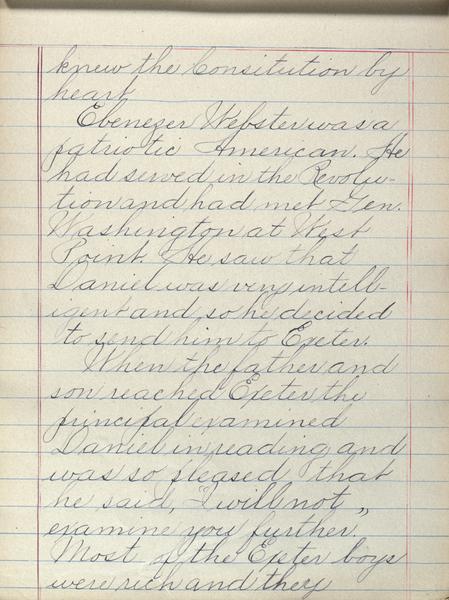 knew the Consitution by
heart
Ebenezer Webster was a
patriotic American. He
had served in the Revolu-
tion and had met Gen.
Washington at West
Point. He saw that
Daniel was very intell-
igent and so he decided
to send him to Exeter.
When the father and
son reached Exeter the
principal examined
Daniel in reading and
was so pleased that
he said, "I will not
examine you further."
Most of the Exeter boys
were rich and they